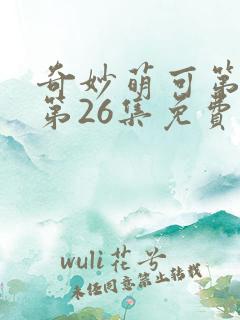 奇妙萌可第
第26集免費
wuli花兮
未经同意禁止转载